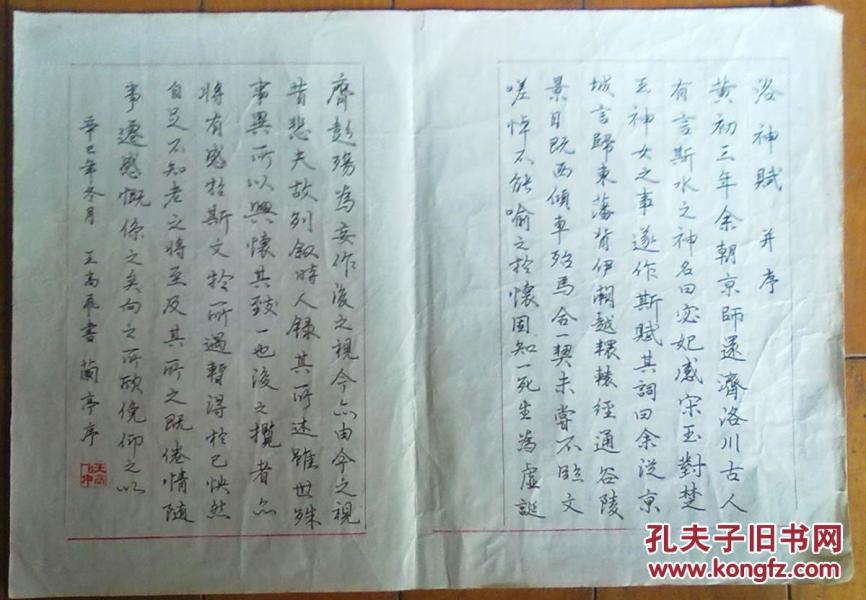 洛神賦 并序
黃初三年余朝京師還濟洛川古人
有言斯水之神名曰宓妃感宋玉對楚
王神女之事遂作斯賦其詞曰余從京
城言歸東藩背伊闕越轘轅經通谷陵
景日既西傾車殆馬合一契未嘗不臨文
嗟悼不能喻之於懷固知一死生為虛誕
齊彭殤為妄作後之視今亦由今之視
昔悲夫故列叙時人錄其所述雖世殊
事異所以興懷其致一也後之攬者亦
將有感於斯文於所遇暫得於己怏然
自足不知老之將至及其所之既倦情隨
事遷感慨係之矣向之所欣俛仰之以
辛巳年冬月 王高 書 蘭亭序
孔夫子旧书网
www.kongfz.com